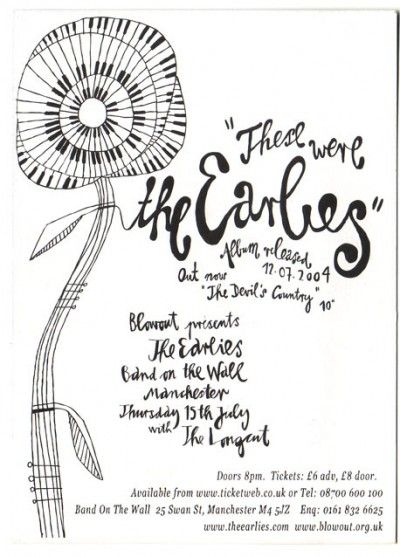 "These were
the Earlies"
Album released
12.07.2004
Out now
"The Devil's Country" 10"
Blowout presents
The Earlies
Band on the Wall
Manchester
Thursday 15th July
with The Longcut
Doors 8pm. Tickets: £6 adv, £8 door.
Available from www.ticketweb.co.uk or Tel: 08700 600 100
Band On The Wall 25 Swan St, Manchester M4 5JZ Enq: 0161 832 6625
www.theearlies.com www.blowout.org.uk